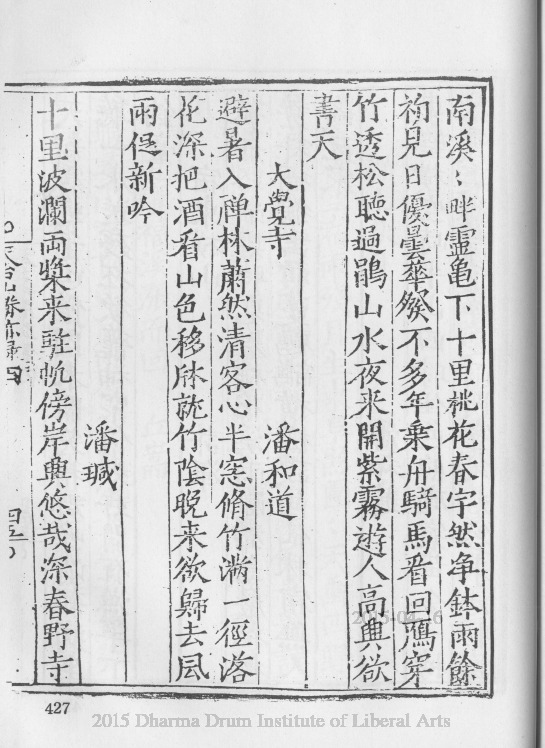 南溪〻畔靈亀下十里桃花春宇然净鉢雨餘
初見日優曇華發不多年乗舟騎馬看回鴈穿
竹透松聴過鵑山水夜来開紫霧遊人高興欲
書天
大覺寺　潘和道
避暑入禅林蕭然清客心半窓脩竹滿一徑落
花深把酒看山色移牀就竹陰晚来欲歸去風
雨促新吟
潘瑊
十里波瀾両槳来駐帆傍岸興悠哉深春野寺
天台山勝亦録四
四五
427
2015 Dharma Drum Institute of Liberal Arts